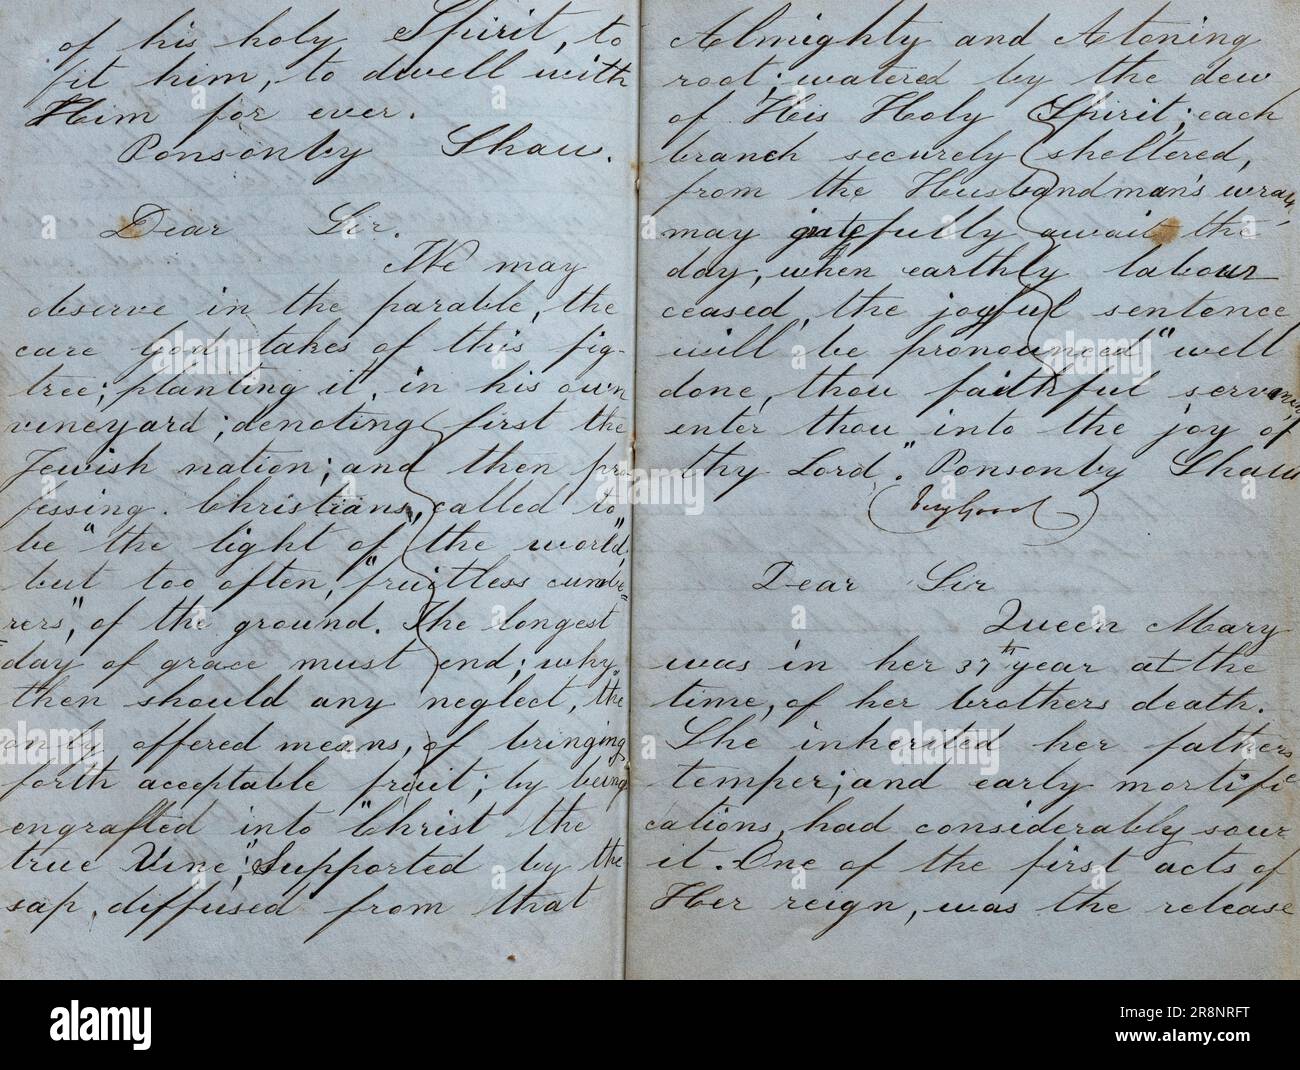 of his holy Spirit, to
fit him, to dwell with
Him for ever.
Ponsonby Shaw.
Dear Sir.
We may
observe in the parable, the
care God takes of this fig-
tree; planting it, in his own
vineyard; denoting first the
Jewish nation; and then pro
fessing. Christians, called to
be "the light of the world",
but too often, "fruitless cumbe=
=rers", of the ground. The longest
day of grace must end; why
then should any neglect, "the
only offered means, of bringing
forth acceptable fruit; by being
engrafted into "Christ the
true Vine"; Supported by the
sap, diffused from that
Almighty and Atoning
root; watered by the dew
of His Holy Spirit; each
branch securely sheltered,
from the Husbandman's wrath,
may gratefully await the
day, when earthly labour
ceased, the joyful sentence
will be pronounced "well
done, thou faithful servant,
enter thou into the joy of
thy Lord". Ponsonby Shaw
(Very Good)
Dear Sir
Queen Mary
was in her 37th year at the
time, of her brothers death.
She inherited her fathers
temper; and early mortifi
cations, had considerably sour
it. One of the first acts of
Her reign, was the release
alamy
Image ID: 2R8NRFT
www.alamy.com